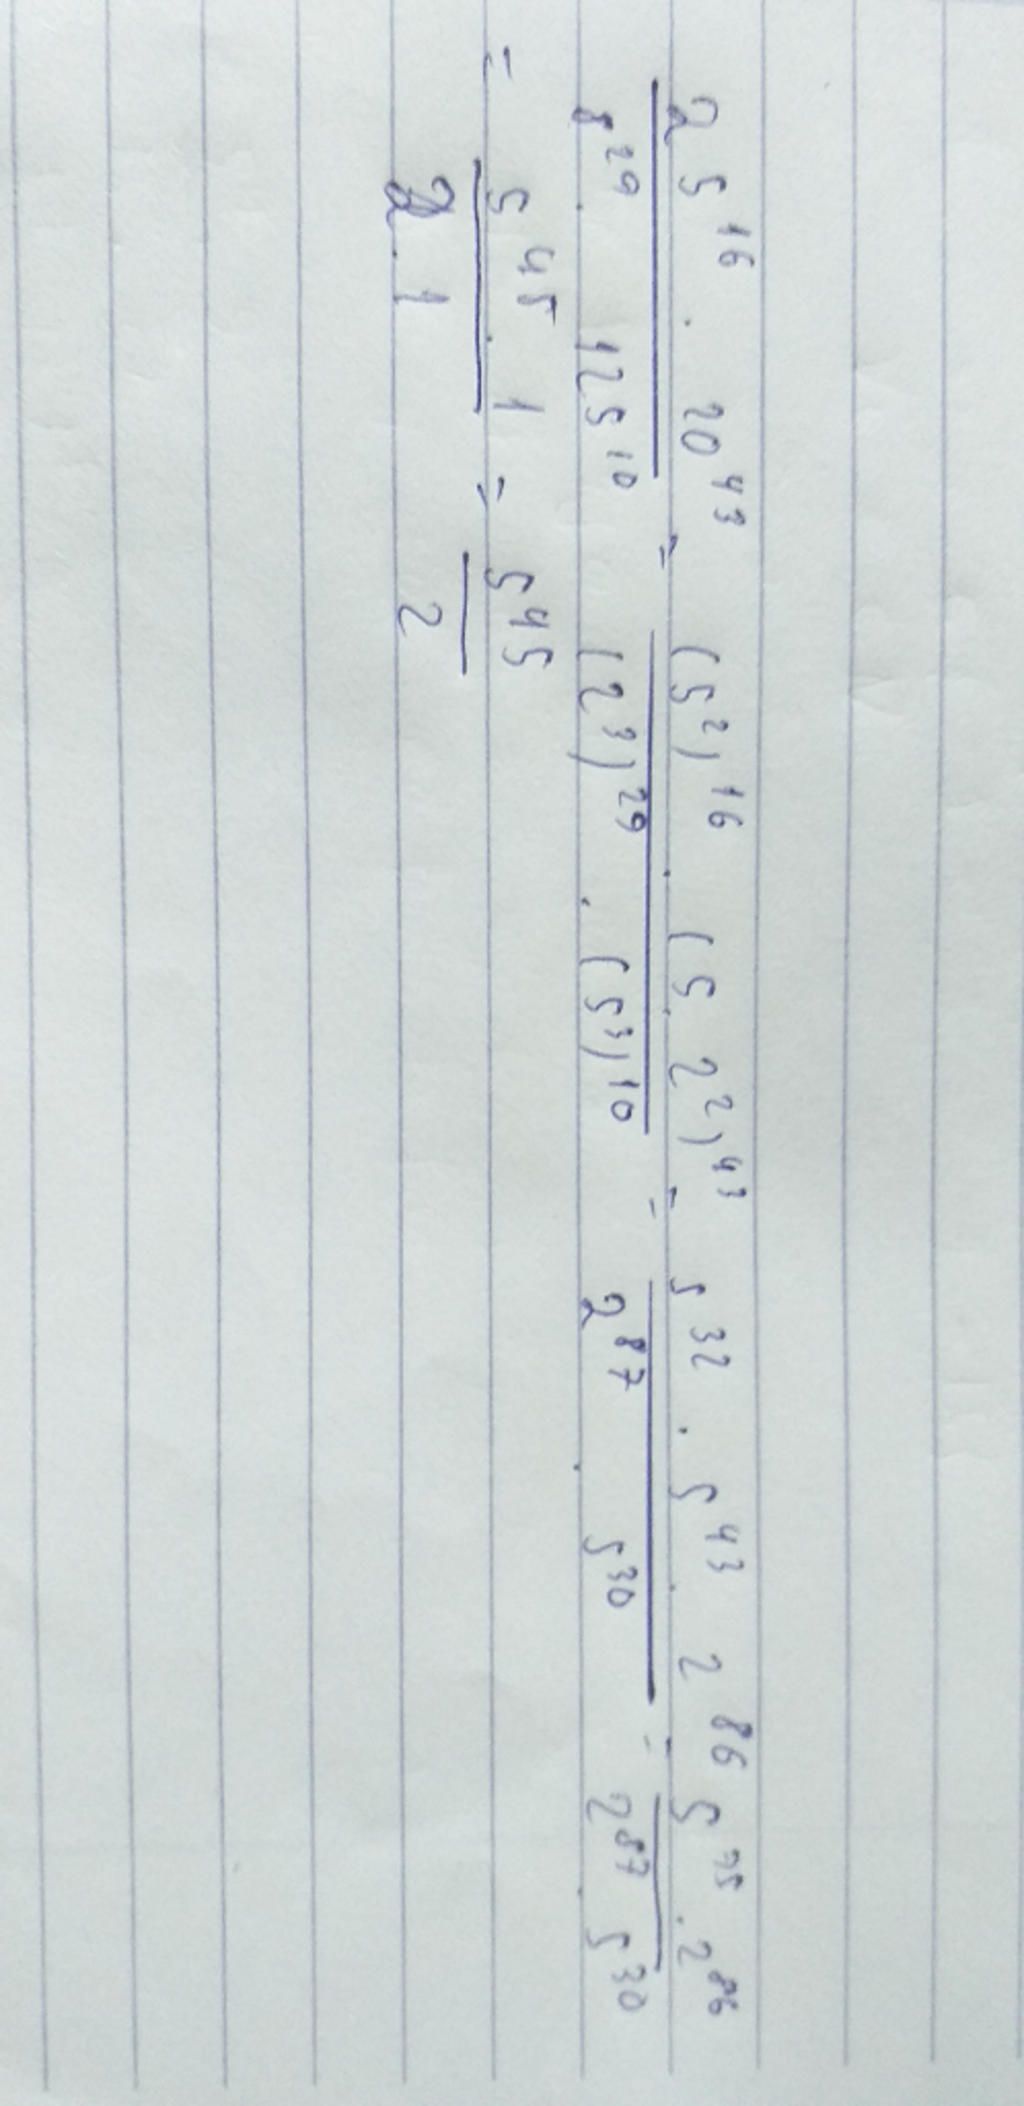 25^16 . 20^43 / 8^29 . 125^10 = (5^2)^16 . (5 . 2^2)^43 / (2^3)^29 . (5^3)^10 = 5^32 . 5^43 . 2^86 / 2^87 . 5^30 = 5^75 . 2^86 / 2^87 . 5^30
= 5^45 . 1 / 2 . 1 = 5^45 / 2